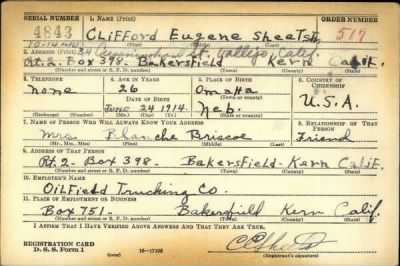 SERIAL NUMBER 1. NAME (Print) ORDER NUMBER
4843 Clifford Eugene Sheets 517
(First) (Middle) (Last)
10-14-44 St. Vallejo, Calif.
2. ADDRESS (Print)
Rt. 2-Box 398- Bakersfield Kern Calif.
(Number and street or R. F. D. number) (Town) (County) (State)
3. TELEPHONE 4. AGE IN YEARS 5. PLACE OF BIRTH 6. COUNTRY OF CITIZENSHIP
None 26 Omaha U.S.A.
DATE OF BIRTH (Town or county)
June 24 1914. Neb.
(Exchange) (Number) (Mo.) (Day) (Yr.) (State or country)
7. NAME OF PERSON WHO WILL ALWAYS KNOW YOUR ADDRESS 8. RELATIONSHIP OF THAT PERSON
Mrs. Blanche Briscoe Friend
(Mr., Mrs., Miss) (First) (Middle) (Last)
9. ADDRESS OF THAT PERSON
Rt. 2- Box 398- Bakersfield- Kern Calif.
(Number and street or R. F. D. number) (Town) (County) (State)
10. EMPLOYER'S NAME
Oilfield Trucking Co.
11. PLACE OF EMPLOYMENT OR BUSINESS
Box 751- Bakersfield Kern Calif.
(Number and street or R. F. D. number) (Town) (County) (State)
I AFFIRM THAT I HAVE VERIFIED ABOVE ANSWERS AND THAT THEY ARE TRUE.
REGISTRATION CARD
D. S. S. Form 1 (over) 16-17105 (Registrant's signature)